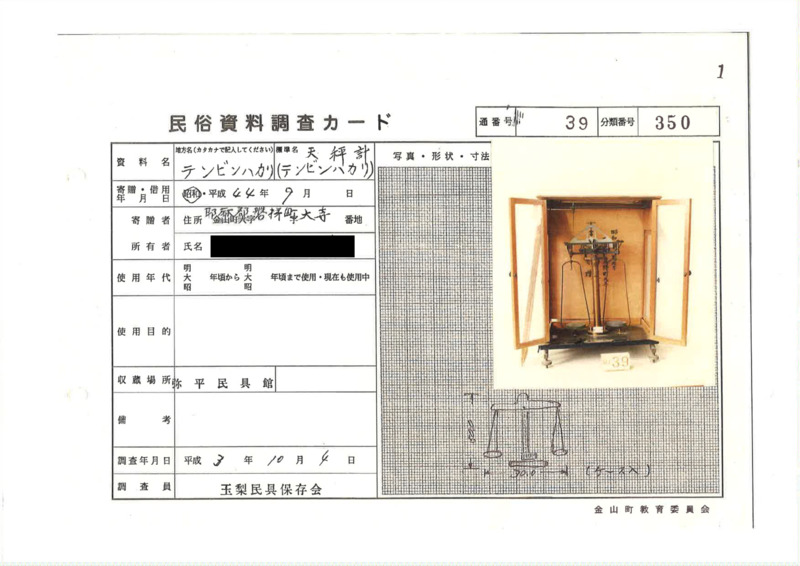 1
民俗資料調査カード
通番号 39 分類番号 350
資料名
地方名(カタカナで記入してください)
テンビンハカリ
標準名 天秤計
(テンビンハカリ)
写真・形状・寸法
寄贈・借用年月日 昭和・平成 44年 9月 日
寄贈者 住所 金山町大字 字 番地
耶麻郡磐梯町大寺
所有者 氏名
使用年代 明大昭 年頃から 明大昭 年頃まで使用・現在も使用中
使用目的
収蔵場所 弥平民具館
備考
調査年月日 平成 3年 10月 4日
調査員 玉梨民具保存会
39
30.0
(ケース入)
金山町教育委員会